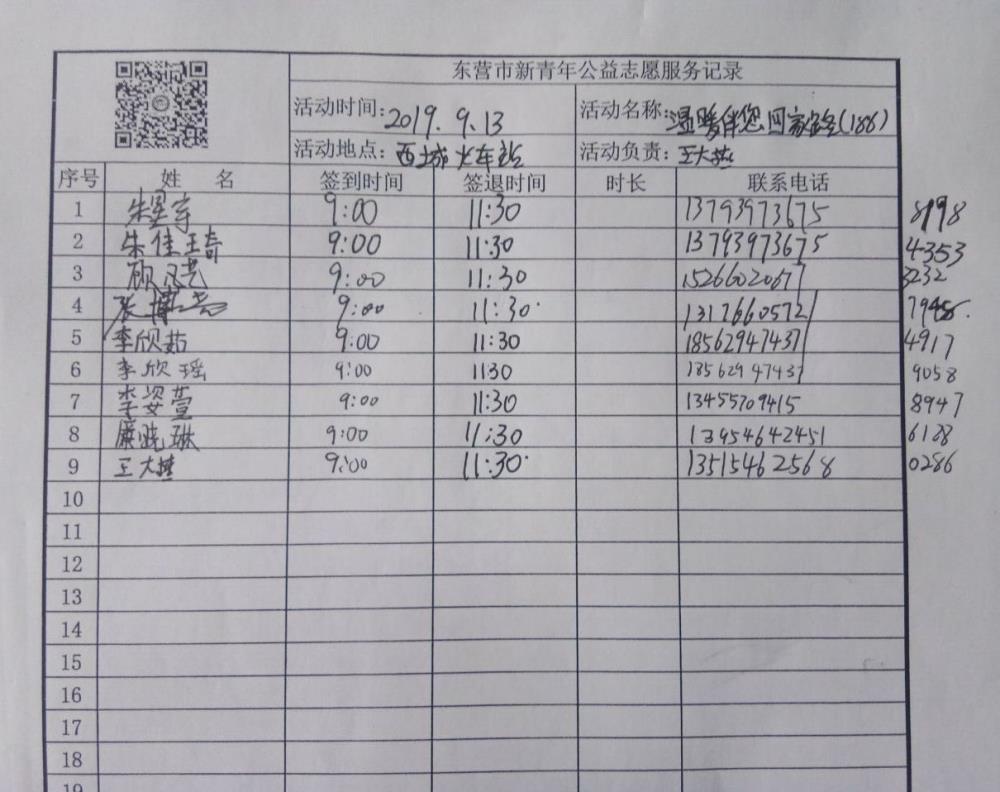 东营市新青年公益志愿服务记录
活动时间：2019.9.13 活动名称：温暖伴您回家路(188)
活动地点：西城火车站 活动负责：王大
序号 姓名 签到时间 签退时间 时长 联系电话
1 朱星宇 9:00 11:30 13793973675 8198
2 朱佳琦 9:00 11:30 13793973675 4353
3 顾 9:00 11:30 15266020677 3232
4 张博 9:00 11:30 13176605721
5 李欣茹 9:00 11:30 18562947437 4917
6 李欣瑶 9:00 1130 18562947437 9058
7 李姿萱 9:00 11:30 13455709415 8947
8 晓琳 9:00 11:30 13954642451 6128
9 王大 9:00 11:30 13515462568 0286
10
11
12
13
14
15
16
17
18
19